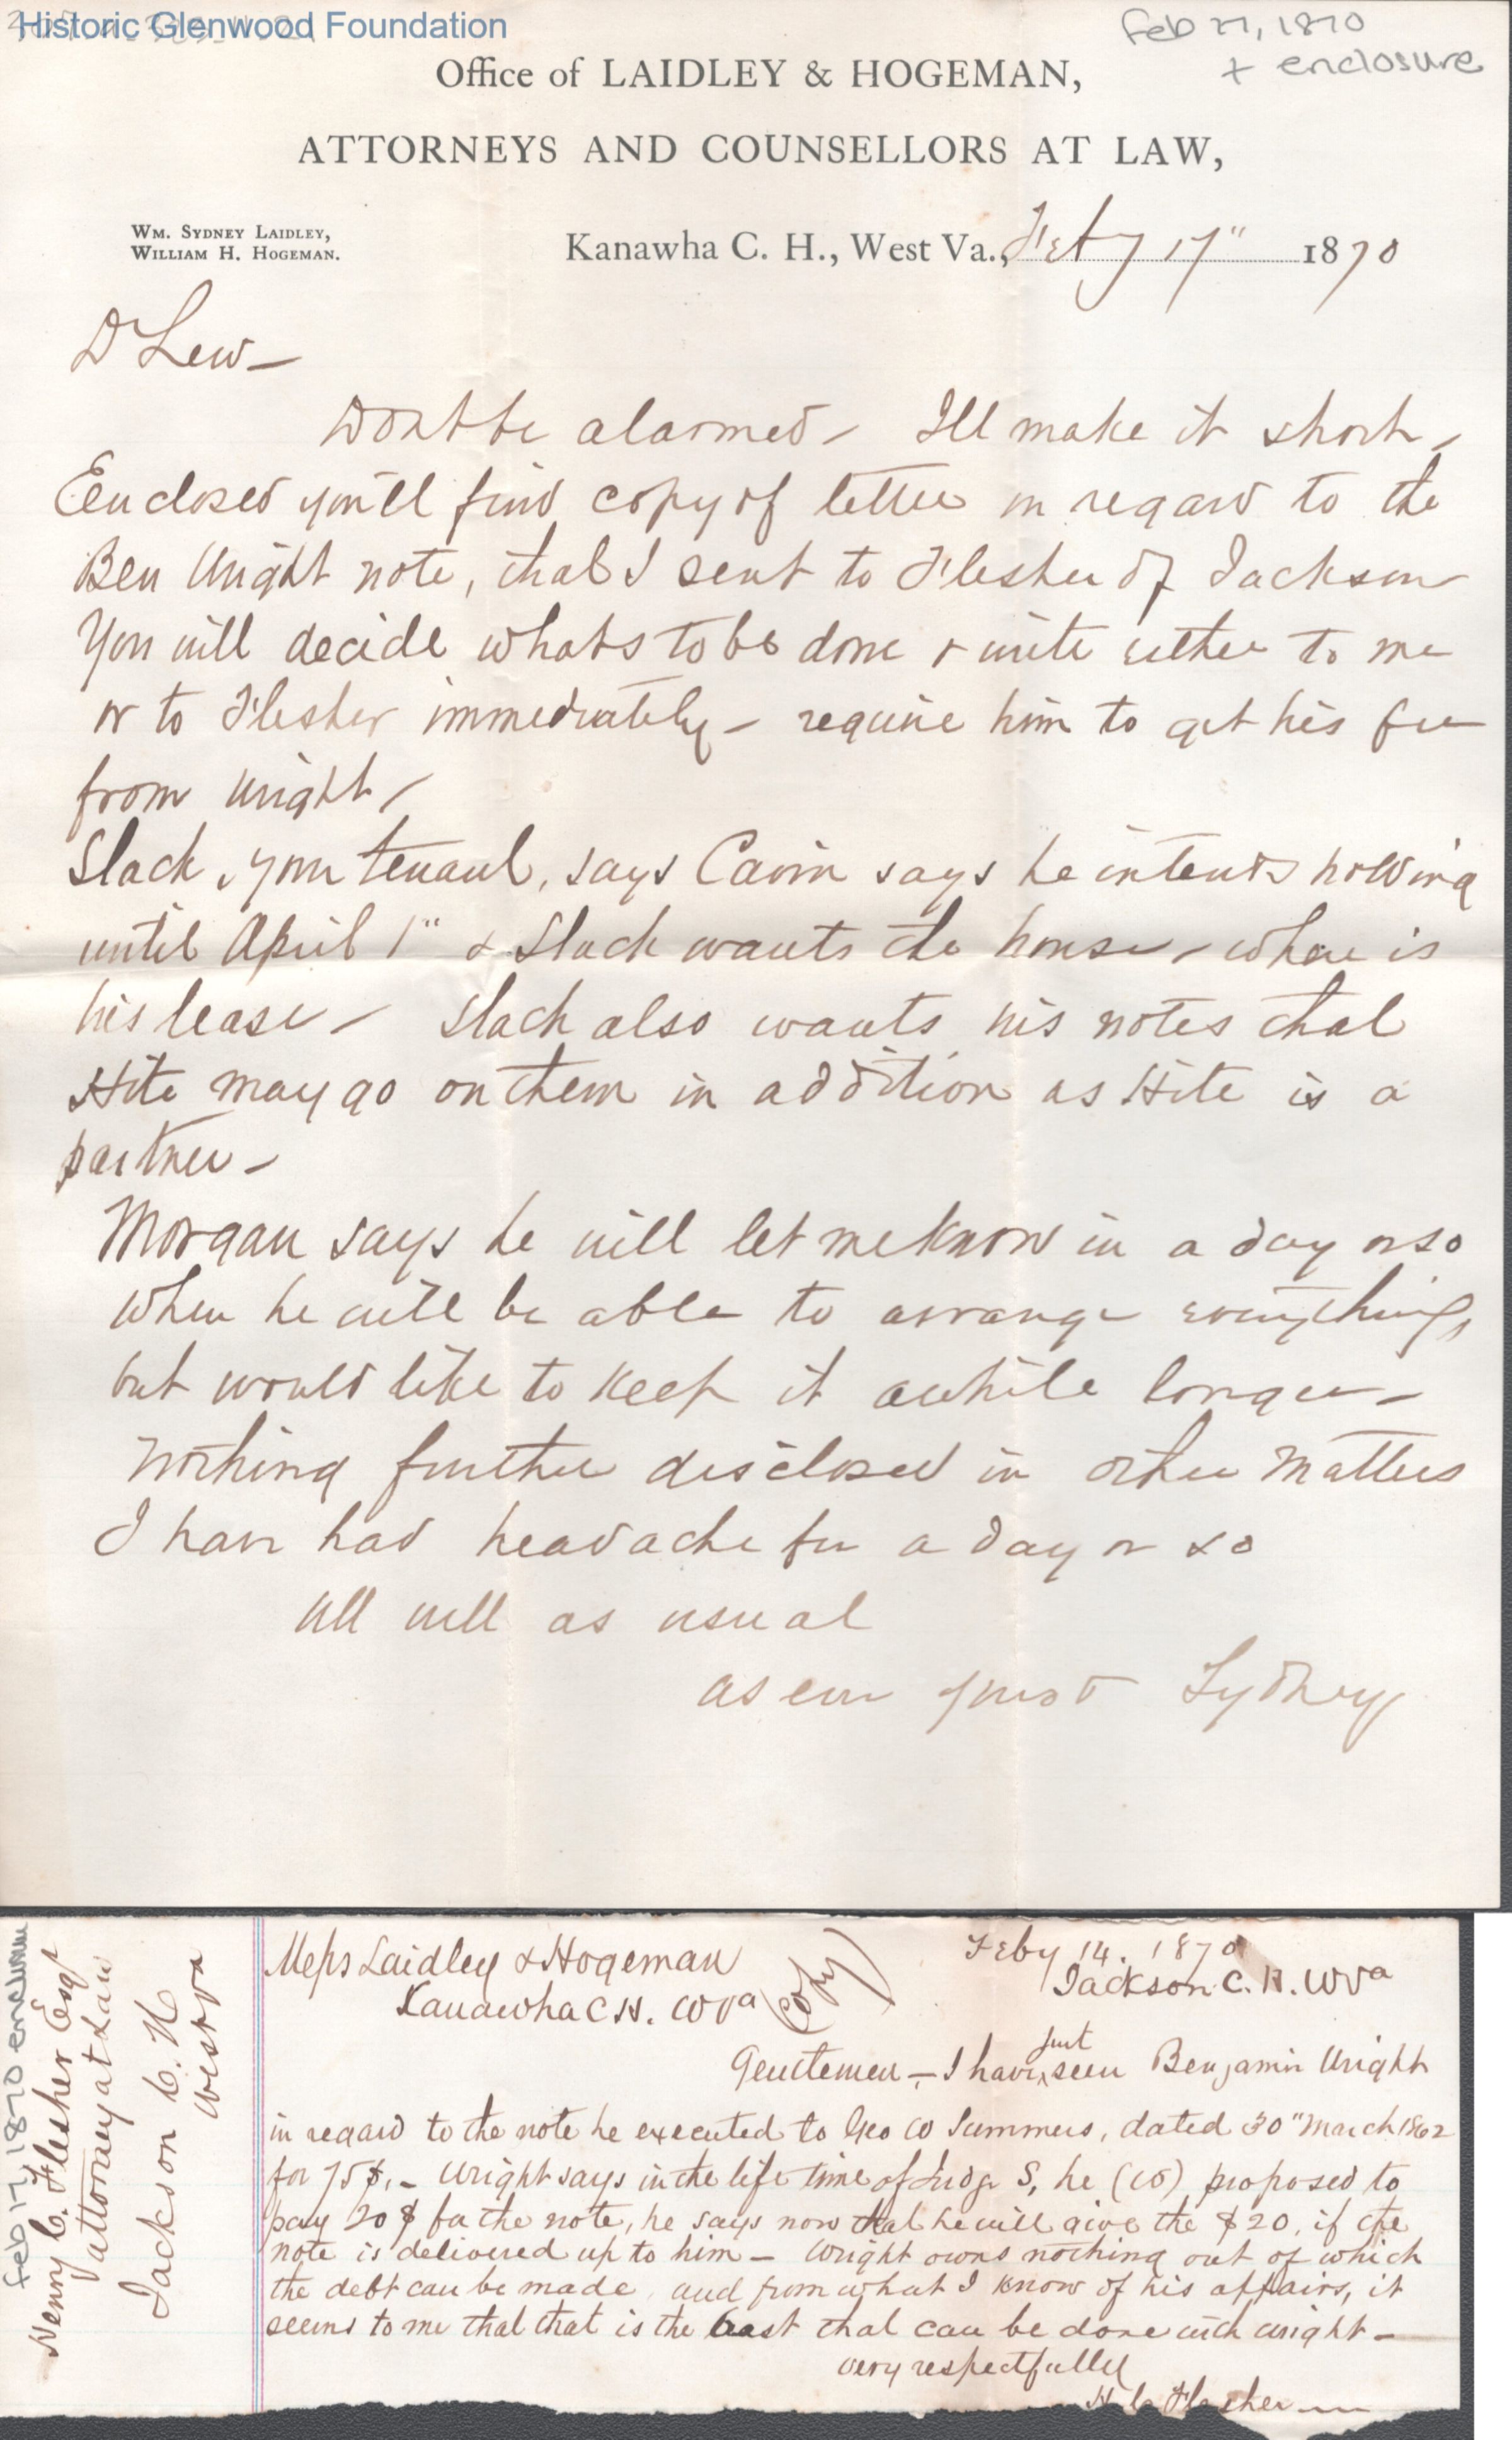 Historic Glenwood Foundation
Feb 17, 1870
+ enclosure
Office of LAIDLEY & HOGEMAN,
ATTORNEYS AND COUNSELLORS AT LAW,
Wm. Sydney Laidley,
William H. Hogeman.
Kanawha C. H., West Va., Feby 17" 1870
D Lew-
Dont be alarmed - Ill make it short -
Eenclosed you'll find copy of letter in regard to the
Ben Wright note, that I sent to Flesher of Jackson
You will decide whats to be done & write either to me
or to Flesher immediately - require him to get his fee
from Wright /
Slack, your tenant, says Cavin says he intends holding
until April 1" & Slack wants the house - where is
his lease - Slack also wants his notes that
Hite may go on them in addition as Hite is a
partner -
Morgan says he will let me know in a day or so
when he will be able to arrange everything,
but would like to keep it awhile longer -
Nothing further disclosed in other matters
I have had headache for a day or so
All well as usual
as ever yours Sydney
Feb 17, 1870 enclosure
Henry C. Flesher Esqr
attorney at Law
Jackson C. H
West va
Messrs Laidley & Hogeman
Kanawha C H. W Va
(Copy)
Feby 14. 1870
Jackson C. H. W Va
just
Gentlemen - I have seen Benjamin Wright
in regard to the note he executed to Geo W Summers, dated 30" March 1862
for 75$. - Wright says in the life time of Judge S, he (W) proposed to
pay 20 $ for the note, he says now that he will give the $20, if the
note is delivered up to him - Wright owns nothing out of which
the debt can be made, and from what I know of his affairs, it
seems to me that that is the best that can be done with Wright -
very respectfully
H C Flesher